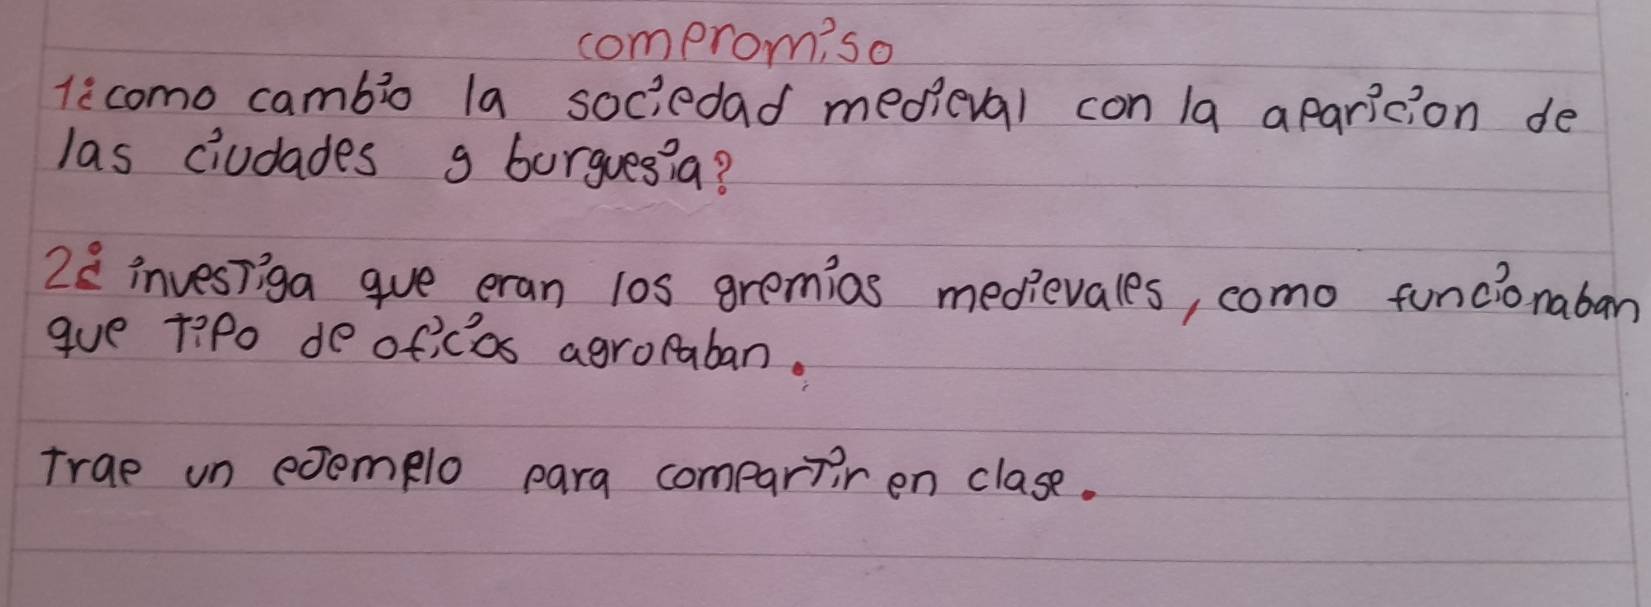 compromiso
1¿como cambio la sociedad medieval con la aparicion de
las ciudades y burguesia?
2¿ investiga que eran los gremios medievales, como funcionaban
que tipo de oficios agropaban.
Trae un eJemplo para compartir en clase.